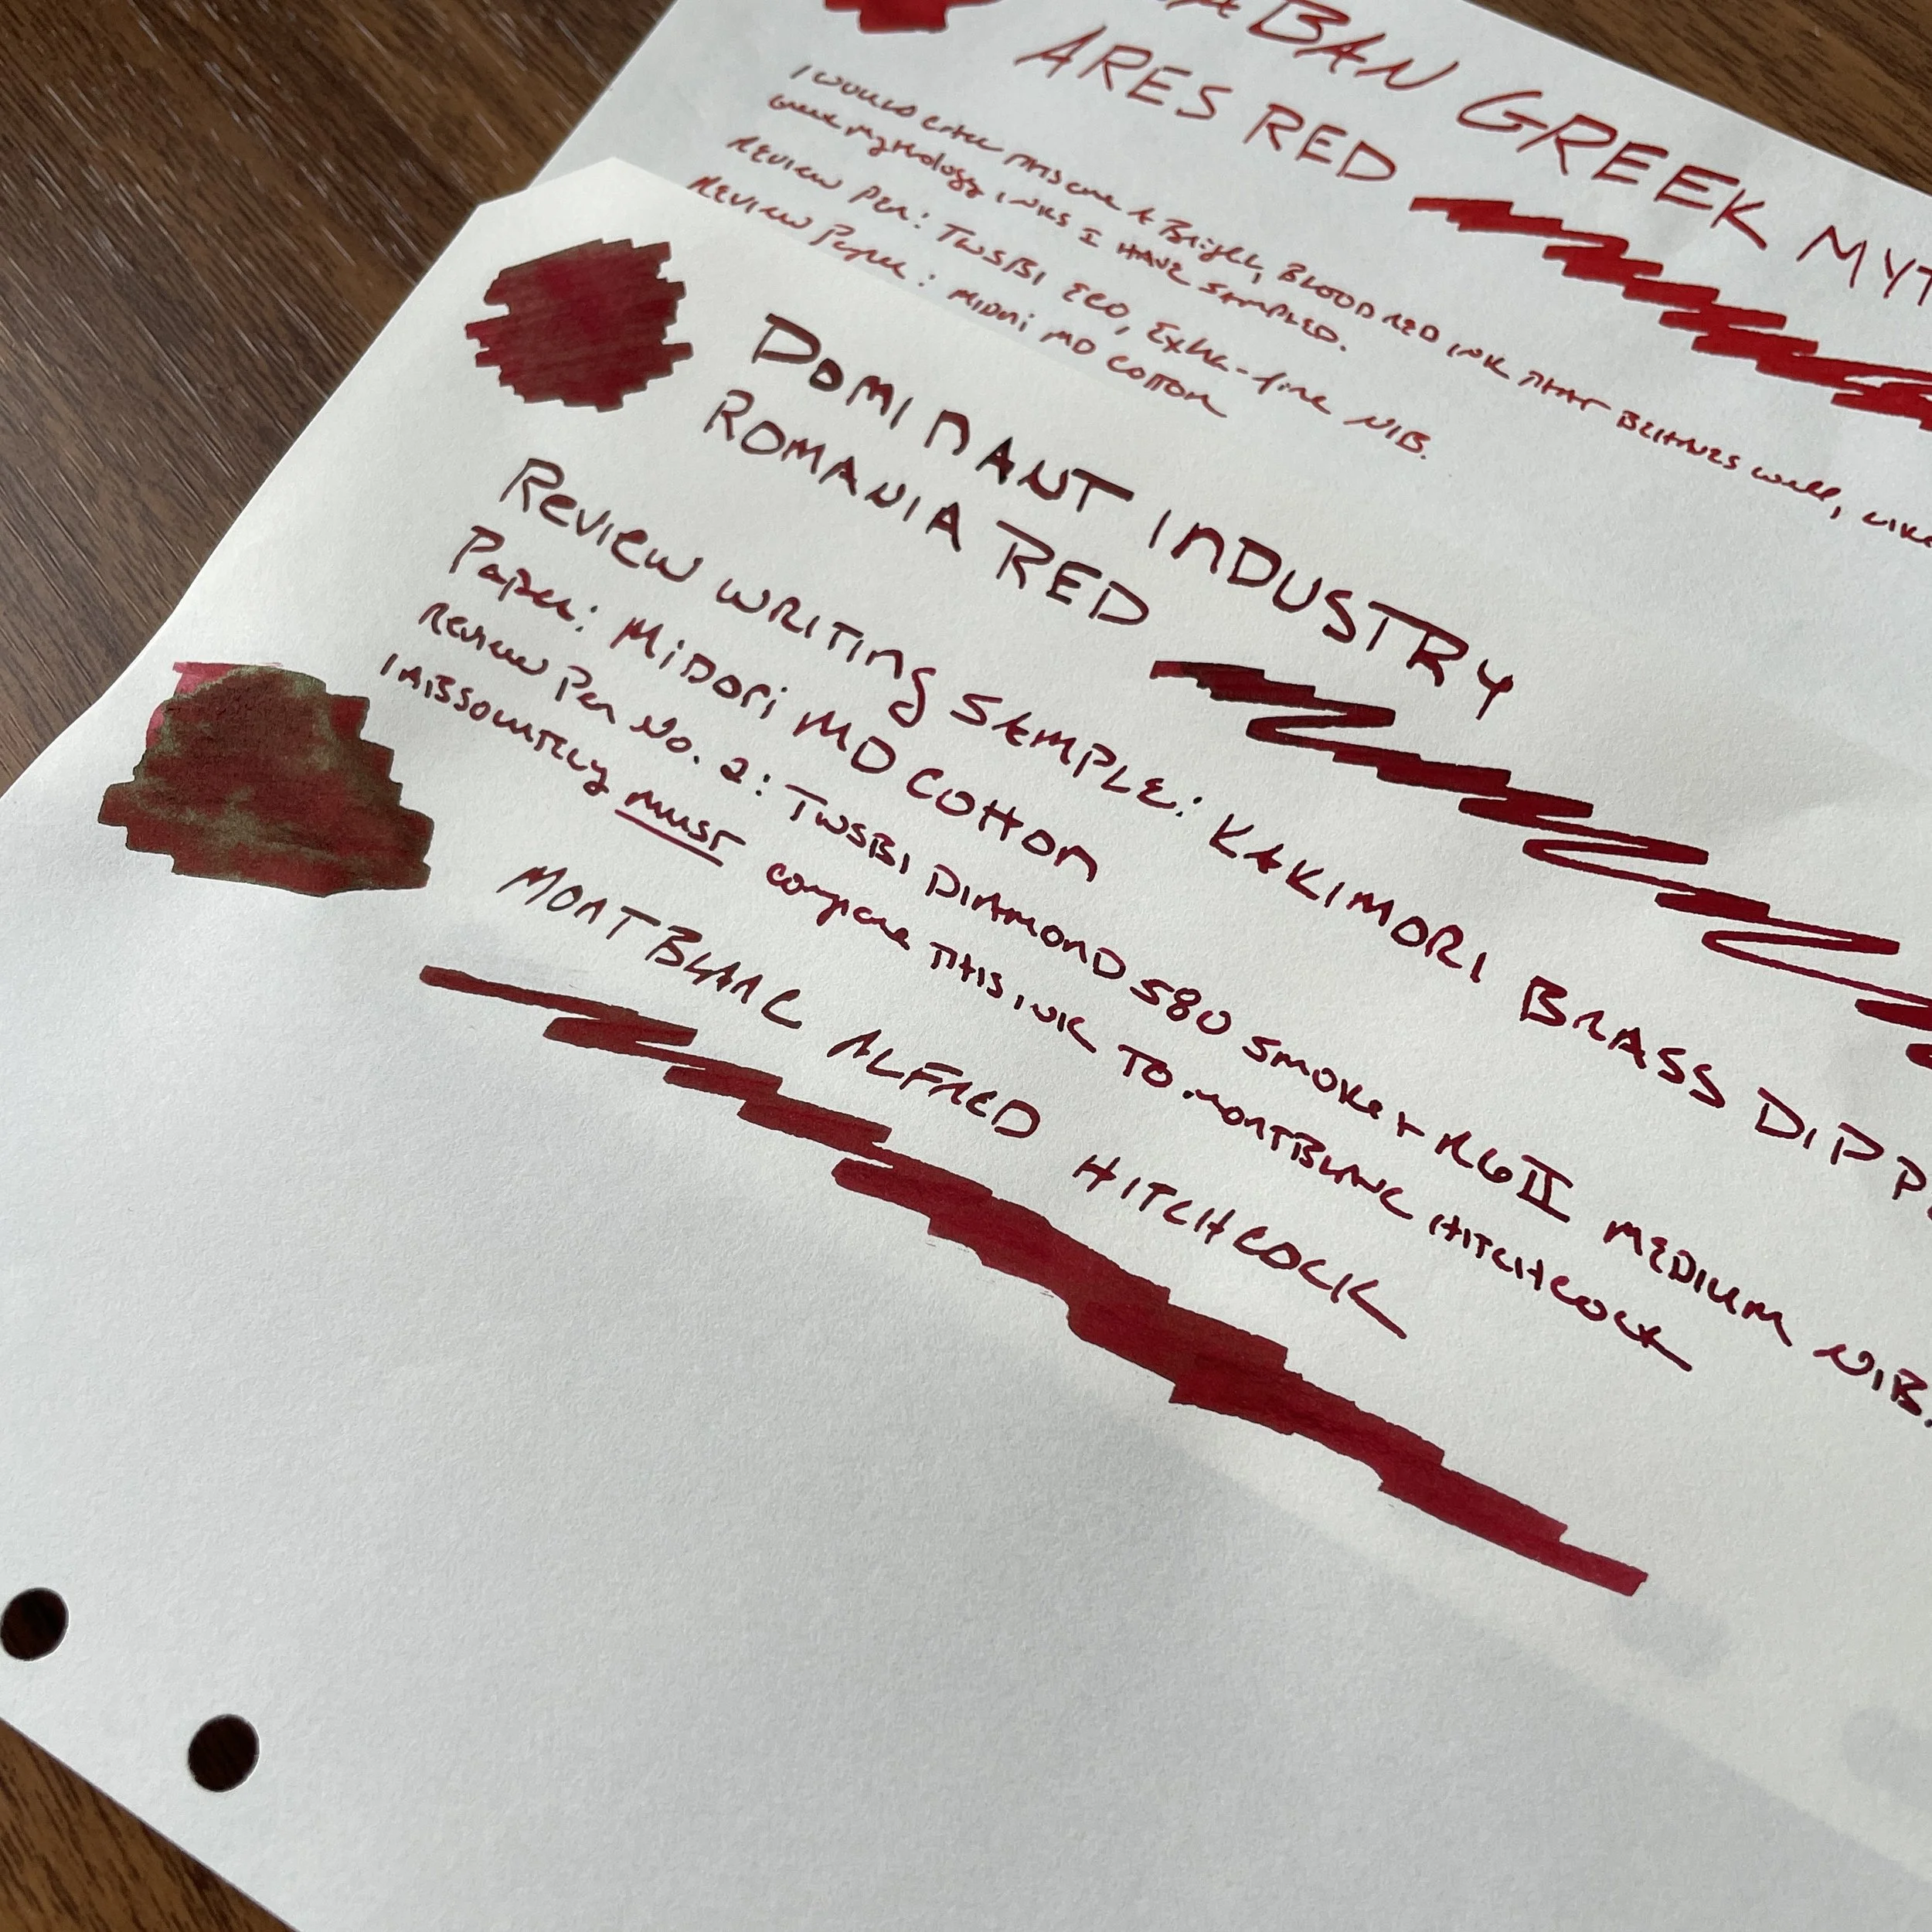 BAN GREEK MYT
ARES RED
I WOULD CALL THIS ONE A Bright, BLOOD RED INK THAT BEHAVES WELL, LIKE
Greek Mythology INKS I HAVE SAMPLED.
REVIEW Pen: TWSBI ECO, Extra-fine NIB.
REVIEW Paper: MIDORI MD COTTON
DOMINANT INDUSTRY
ROMANIA RED
Review WRITING SAMPLE: KAKIMORI BRASS DIP P
Paper: MIDORI MD COTTON
Review Pen No. 2: TWSBI DIAMOND 580 SMOKE + RGII MEDIUM NIB.
I ABSOLUTELY MUST compare THIS INK TO MONTBLANC HITCHCOCK
MONTBLANC ALFRED HITCHCOCK